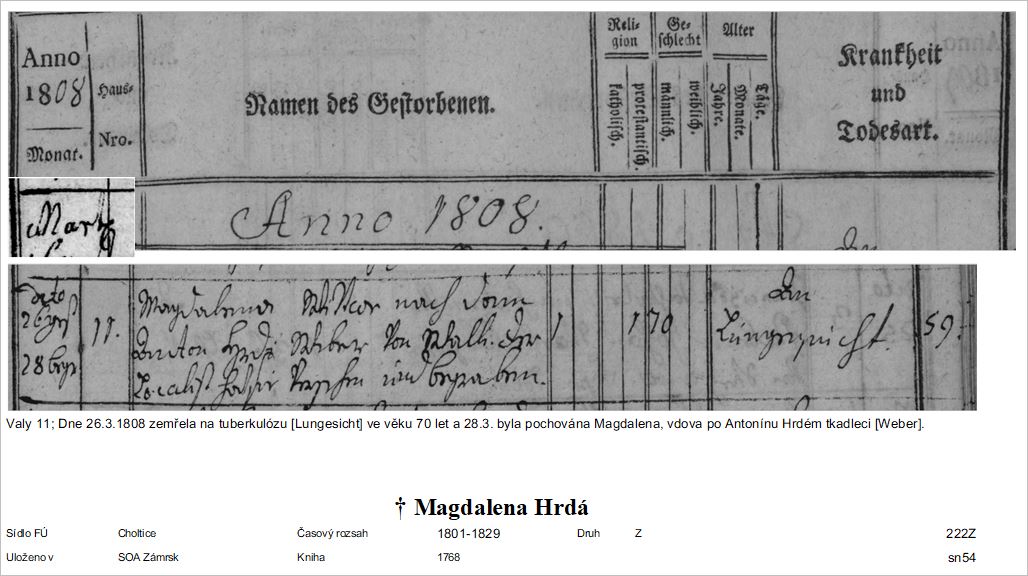 Anno
1808
Haus-
Nro.
Monat.
Namen des Gestorbenen.
Reli-
gion
katholisch.
protestantisch.
Ge-
schlecht
männlich.
weiblich.
Alter
Jahre.
Monate.
Täge.
Krankheit
und
Todesart.
Martz
Anno 1808.
An
dato
26
28
11.
Magdalena Wittwe nach dem
Anton Hrdi Weber von Walli. Der
Localist und begraben.
1
1
70
An
Lungensicht.
59.
Valy 11; Dne 26.3.1808 zemřela na tuberkulózu [Lungesicht] ve věku 70 let a 28.3. byla pochována Magdalena, vdova po Antonínu Hrdém tkadleci [Weber].
† Magdalena Hrdá
Sídlo FÚ Choltice Časový rozsah 1801-1829 Druh Z 222Z
Uloženo v SOA Zámrsk Kniha 1768 sn54